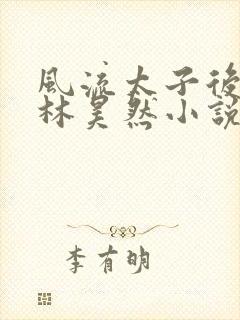 風流太子後
林昊然小説
李有明